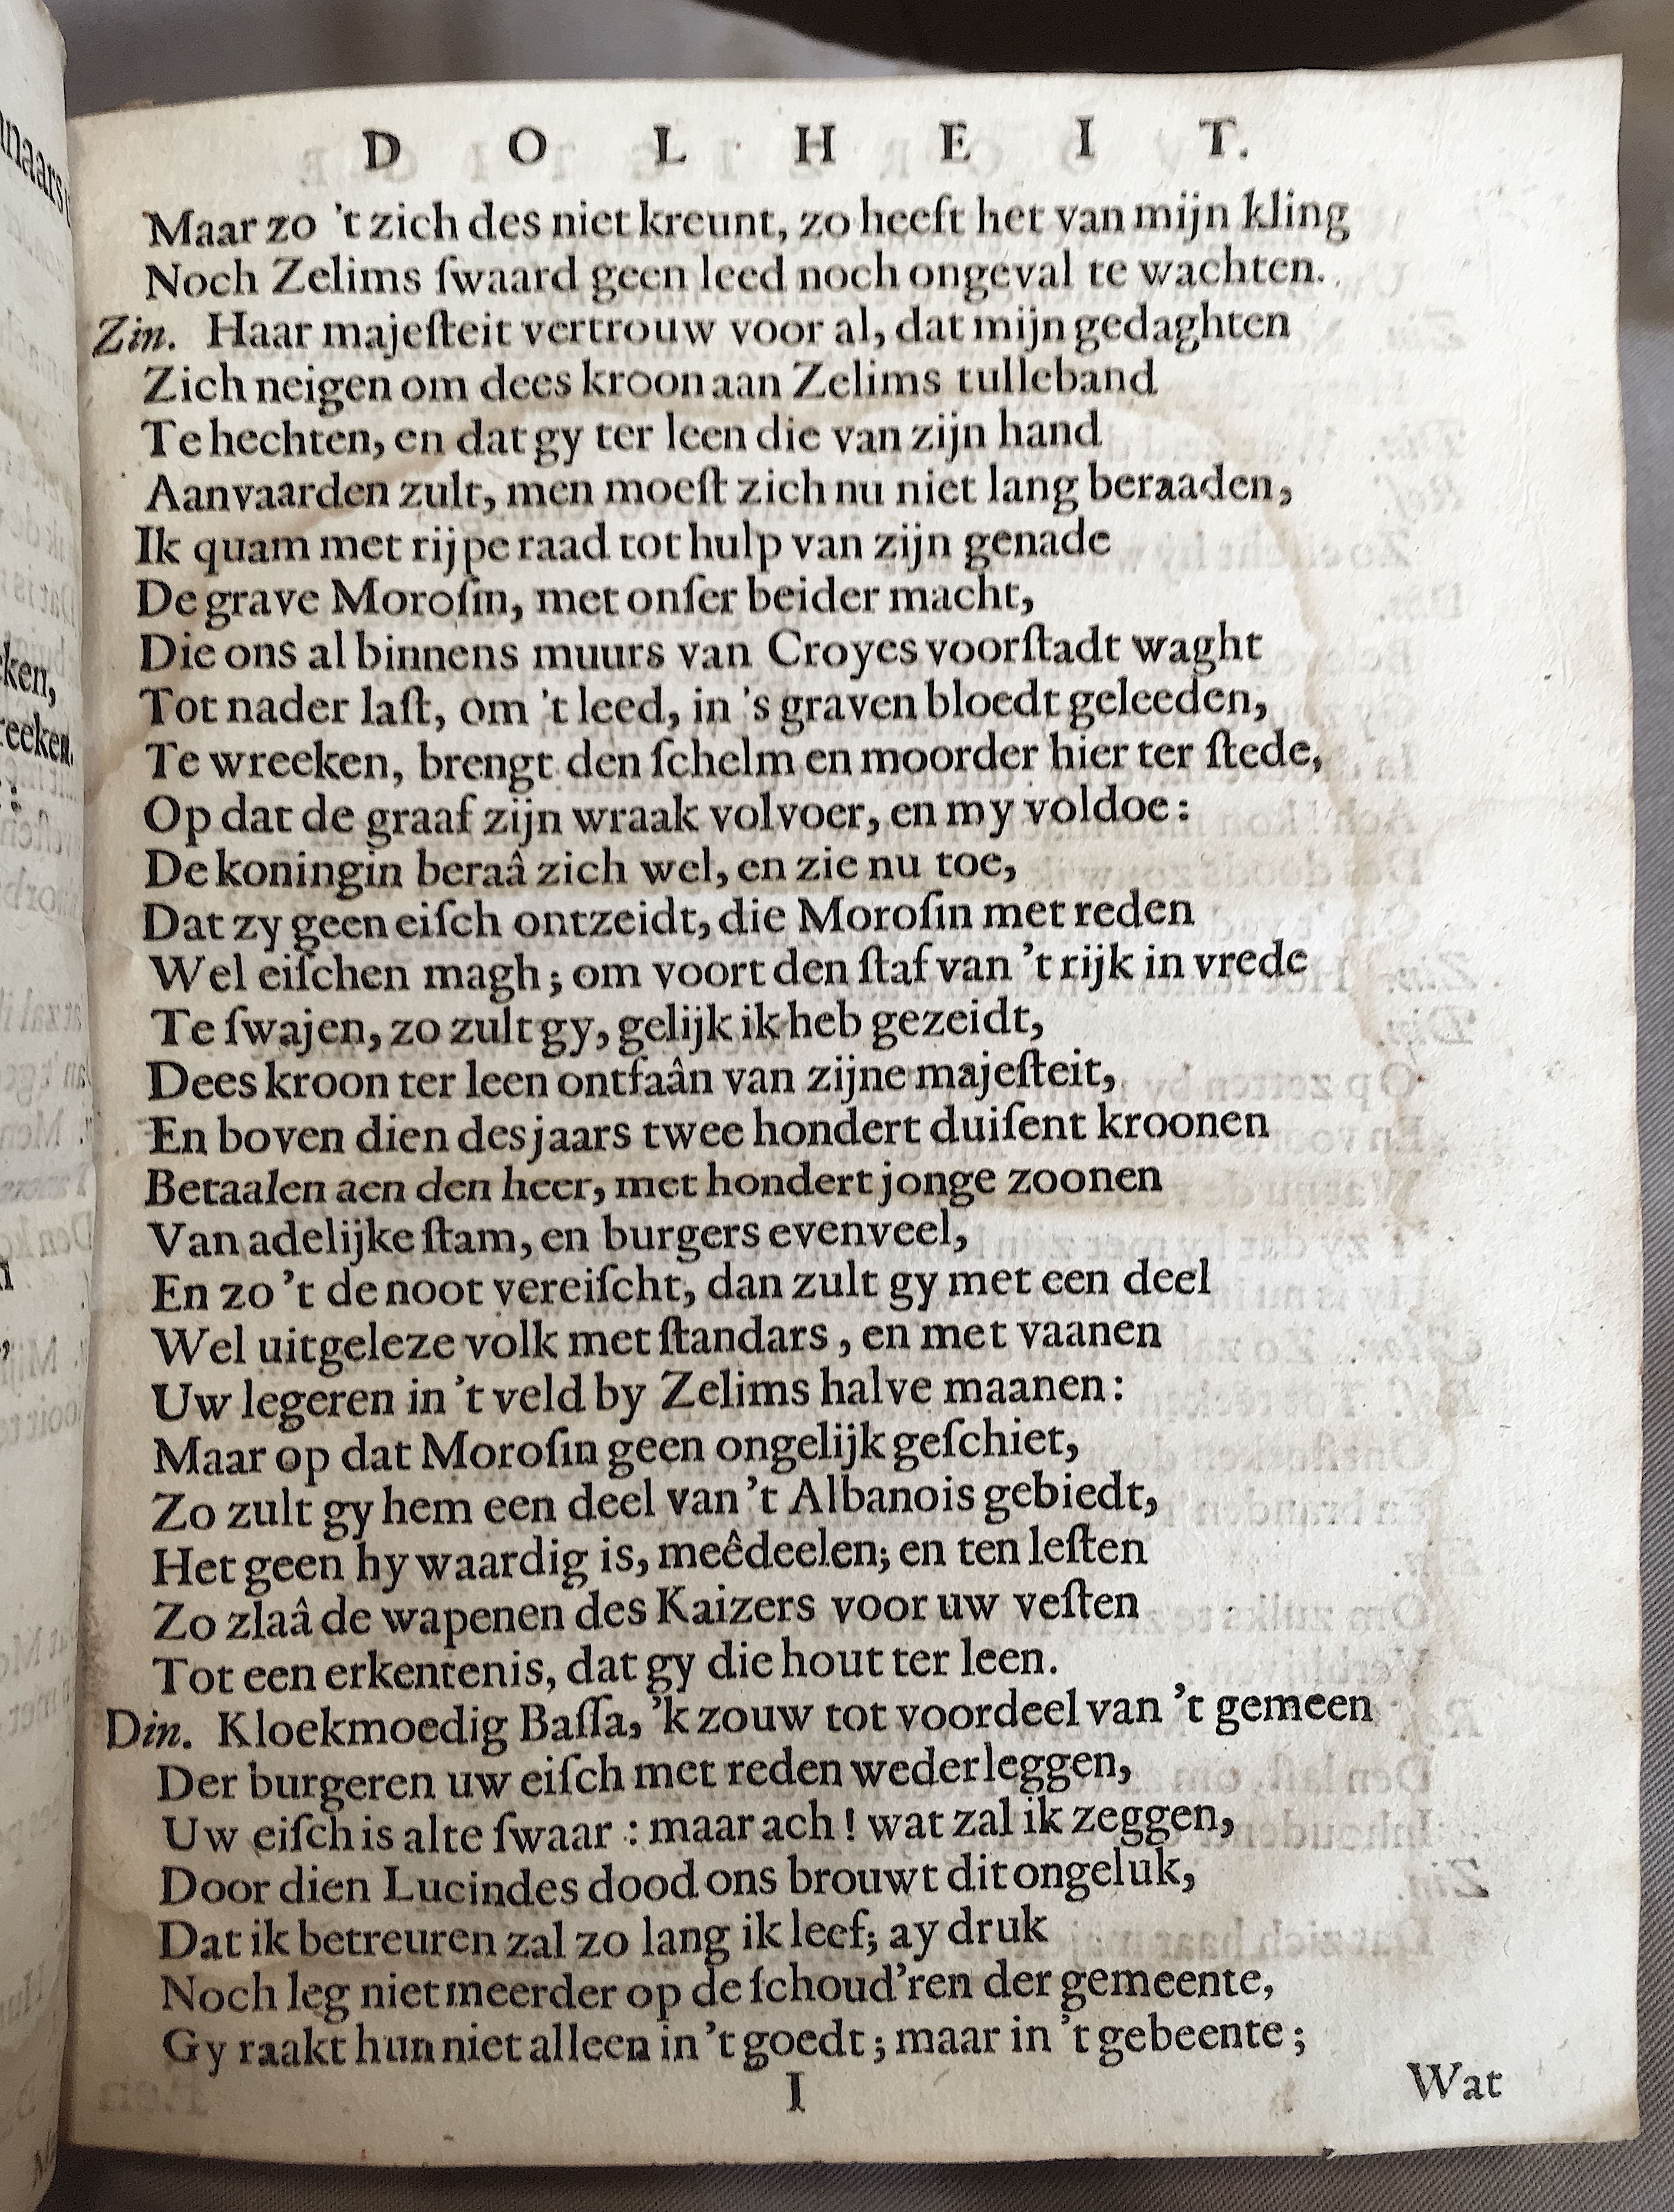 D O L H E I T.
Maar zo 't zich des niet kreunt, zo heeft het van mijn kling
Noch Zelims ſwaard geen leed noch ongeval te wachten.
Zin. Haar majeſteit vertrouw voor al, dat mijn gedaghten
Zich neigen om dees kroon aan Zelims tulleband
Te hechten, en dat gy ter leen die van zijn hand
Aanvaarden zult, men moeſt zich nu niet lang beraaden,
Ik quam met rijpe raad tot hulp van zijn genade
De grave Moroſin, met onſer beider macht,
Die ons al binnens muurs van Croyes voorſtadt waght
Tot nader laſt, om 't leed, in 's graven bloedt geleeden,
Te wreeken, brengt den ſchelm en moorder hier ter ſtede,
Op dat de graaf zijn wraak volvoer, en my voldoe:
De koningin beraâ zich wel, en zie nu toe,
Dat zy geen eiſch ontzeidt, die Moroſin met reden
Wel eiſchen magh; om voort den ſtaf van 't rijk in vrede
Te ſwajen, zo zult gy, gelijk ik heb gezeidt,
Dees kroon ter leen ontfaân van zijne majeſteit,
En boven dien des jaars twee hondert duiſent kroonen
Betaalen aen den heer, met hondert jonge zoonen
Van adelijke ſtam, en burgers evenveel,
En zo 't de noot vereiſcht, dan zult gy met een deel
Wel uitgeleze volk met ſtandars, en met vaanen
Uw legeren in 't veld by Zelims halve maanen:
Maar op dat Moroſin geen ongelijk geſchiet,
Zo zult gy hem een deel van 't Albanois gebiedt,
Het geen hy waardig is, meêdeelen; en ten leſten
Zo zlaâ de wapenen des Kaizers voor uw veſten
Tot een erkentenis, dat gy die hout ter leen.
Din. Kloekmoedig Baſſa, 'k zouw tot voordeel van 't gemeen
Der burgeren uw eiſch met reden wederleggen,
Uw eiſch is alte ſwaar: maar ach! wat zal ik zeggen,
Door dien Lucindes dood ons brouwt dit ongeluk,
Dat ik betreuren zal zo lang ik leef; ay druk
Noch leg niet meerder op de ſchoud'ren der gemeente,
Gy raakt hun niet alleen in 't goedt; maar in 't gebeente;
I
Wat